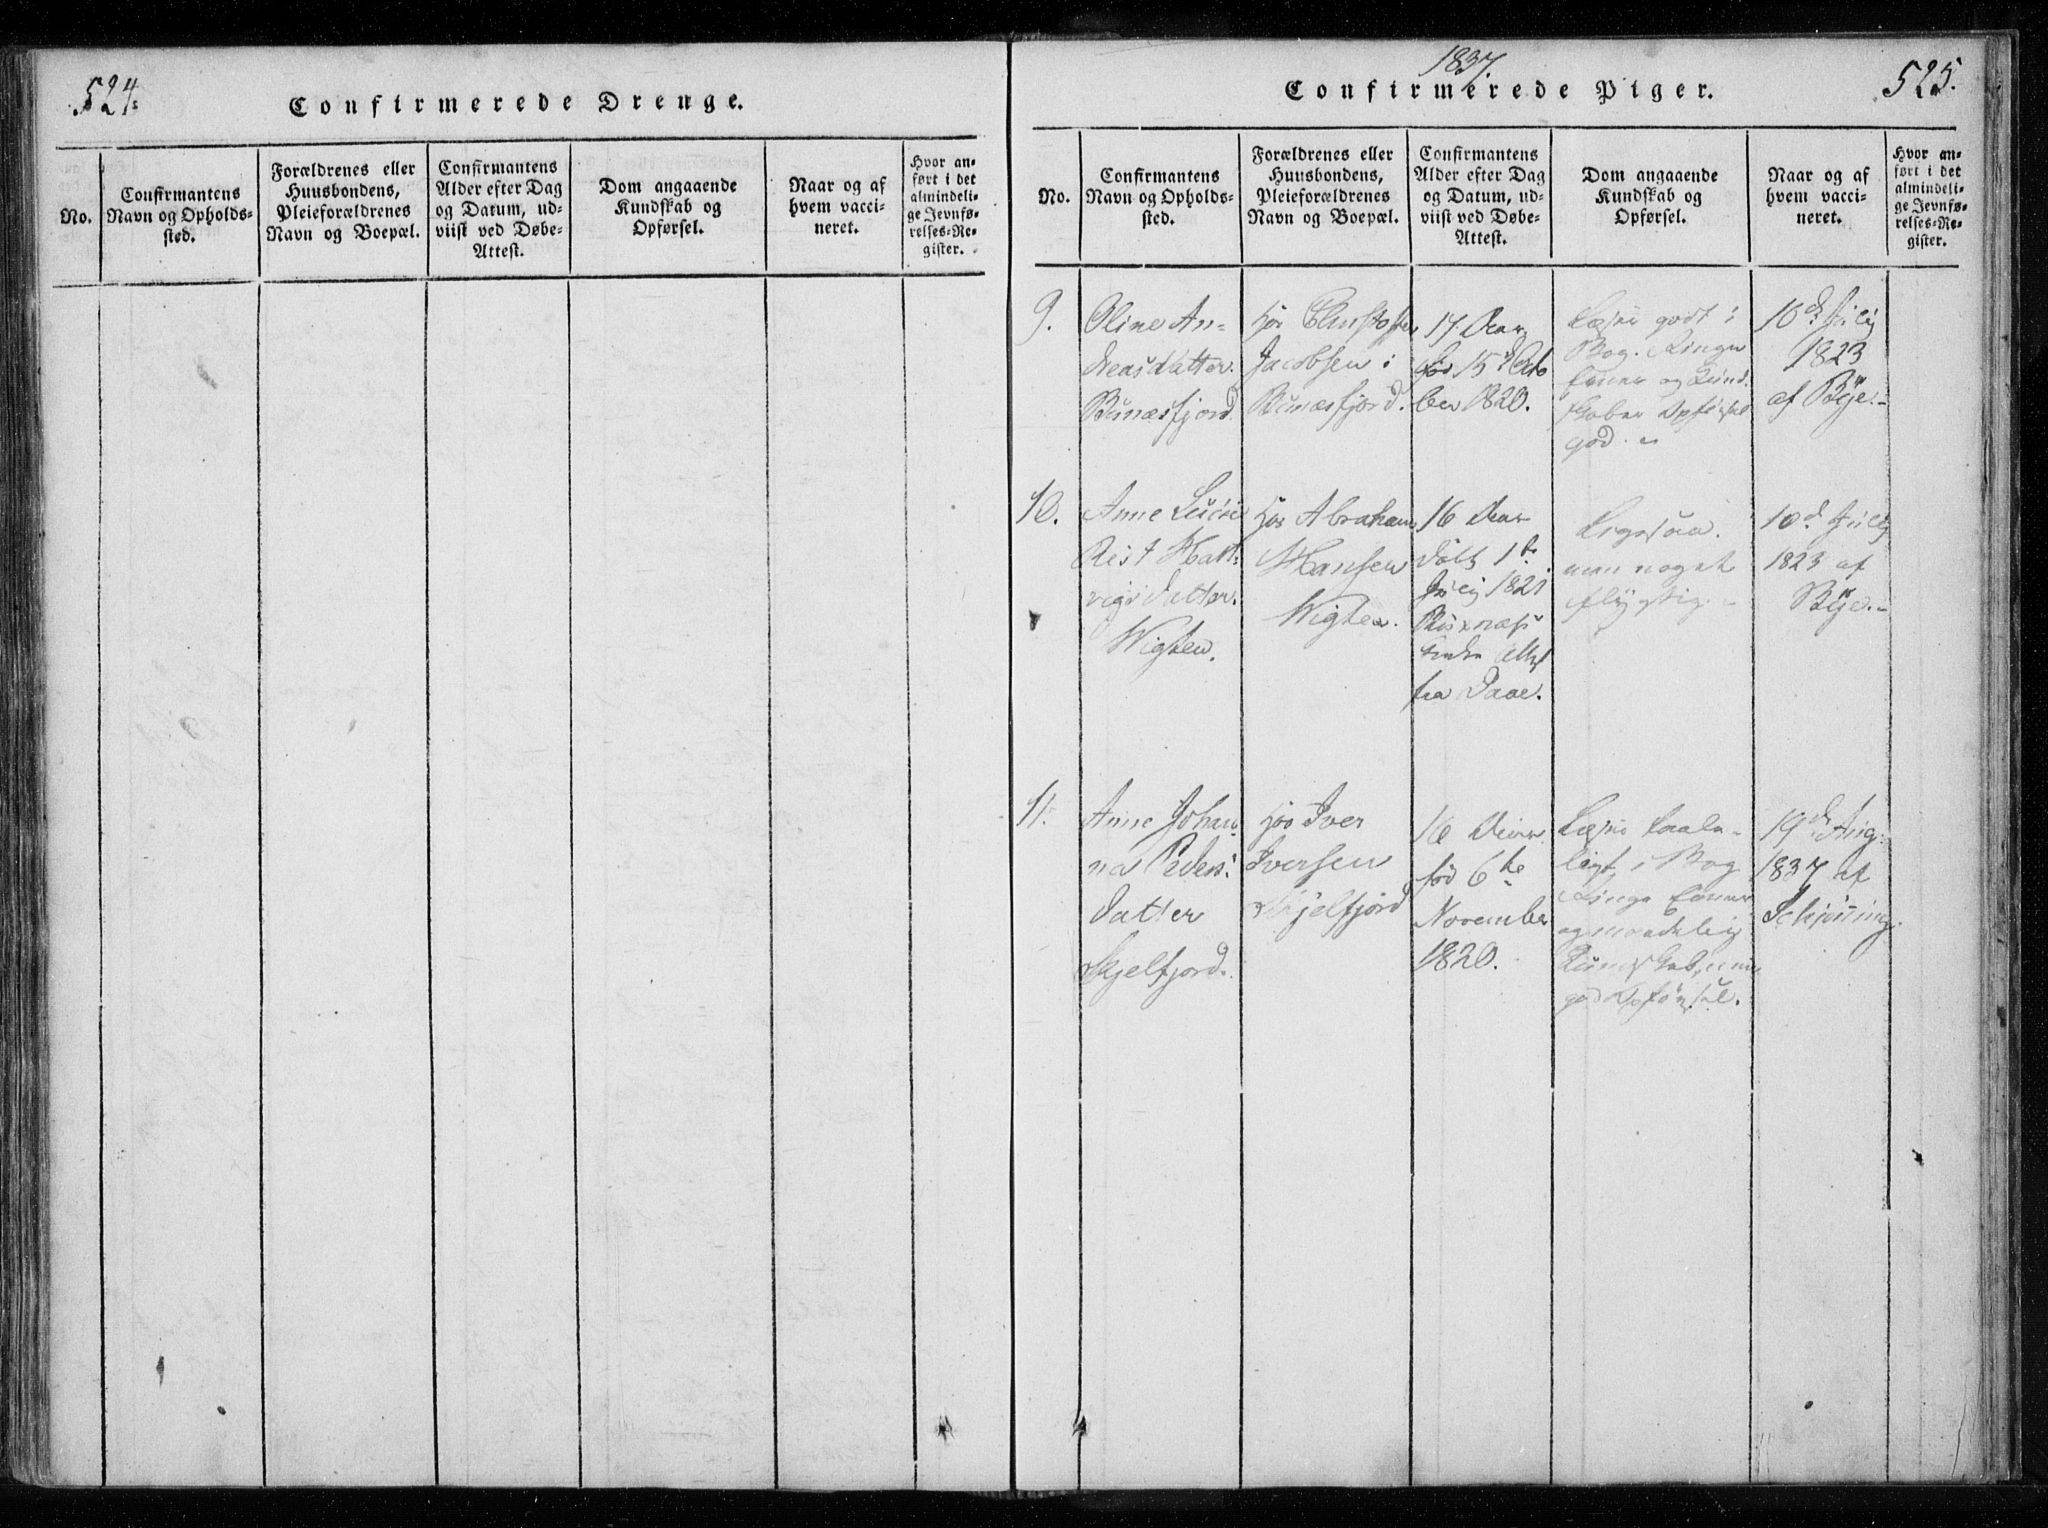 524.
Confirmerede Drenge.
No.
Confirmantens
Navn og Opholds-
sted.
Forældrenes eller
Huusbondens,
Pleieforældrenes
Navn og Boepæl.
Confirmantens
Alder efter Dag
og Datum, ud-
viist ved Døbe-
Attest.
Dom angaaende
Kundskab og
Opførsel.
Naar og af
hvem vacci-
neret.
Hvor an-
ført i det
almindeli-
ge Jevnfø-
relses-Re-
gister.
1837.
Confirmerede Piger.
525.
No.
Confirmantens
Navn og Opholds-
sted.
Forældrenes eller
Huusbondens,
Pleieforældrenes
Navn og Boepæl.
Confirmantens
Alder efter Dag
og Datum, ud-
viist ved Døbe-
Attest.
Dom angaaende
Kundskab og
Opførsel.
Naar og af
hvem vacci-
neret.
Hvor an-
ført i det
almindeli-
ge Jevnfø-
relses-Re-
gister.
9.
Oline An-
dreasdatter
Bunæsfjord
hos Christopher
Jacobsen i
Bunæsfjord.
17 Aar
fød 15d Octo
ber 1820.
Læser godt i
Bog. Ringe
Evner og Kund-
skaber Opførsel
god.
10d July
1823
af Bye.
10.
Anne Lucie
Hart-
vigsdatter
Wigten.
hos Abraham
Hansen
Wigten.
16 Aar
døbt 1te
July 1821
fra
Ligesaa.
men noget
flygtig.
10d July
1823 af
Bye.
11.
Anne Johan-
na Peders-
datter
Skjelfjord.
hos Iver
Iversen
Skjelfjord
16 Aar
fød 6te
November
1820.
Læser taale-
ligt i Bog
Ringe Evner
og maadelig
Kundskab, men
god Opførsel.
19d Aug.
1837 af
Schjønning.